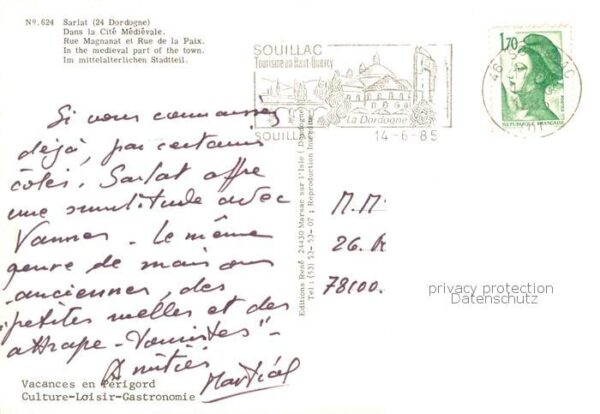 Nº.624 Sarlat (24 Dordogne)
Dans la Cité Médiévale.
Rue Magnanat et Rue de la Paix.
In the medieval part of the town.
Im mittelalterlichen Stadtteil.
SOUILLAC
Tourisme en Haut-Quercy
La Dordogne
SOUILLAC
14-6-85
46
1,70
REPUBLIQUE FRANÇAISE
Si vous connaissez
déjà, par certains
côtés, Sarlat offre
une similitude avec
Vannes. Le même
genre de maisons
anciennes, des
"petites ruelles et des
attrape-touristes"
Amitiés
Martial
Editions René 24430 Marsac sur l'Isle (Dordogne)
Tél : (53) 53-53-07 ; Reproduction Interdite
M. M
26.
78100.
privacy protection
Datenschutz
Vacances en Périgord
Culture-Loisir-Gastronomie